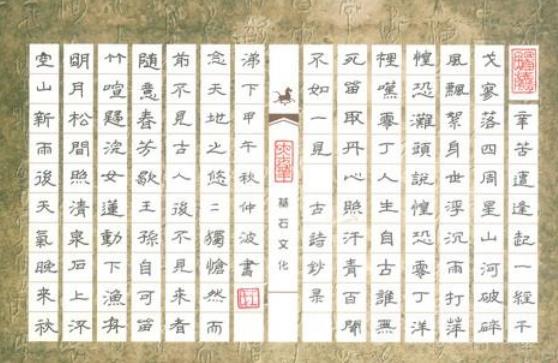 辛苦遭逢起一經干
戈寥落四周星山河破碎
風飄絮身世浮沉雨打萍
惶恐灘頭說惶恐零丁洋
裡嘆零丁人生自古誰無
死留取丹心照汗青百聞
不如一見 古詩鈔录
基石文化
涕下甲午秋仲波書
念天地之悠二獨愴然而
前不見古人後不見來者
隨意春芳歇王孫自可留
竹喧歸浣女蓮動下漁舟
明月松間照清泉石上流
空山新雨後天氣晚來秋